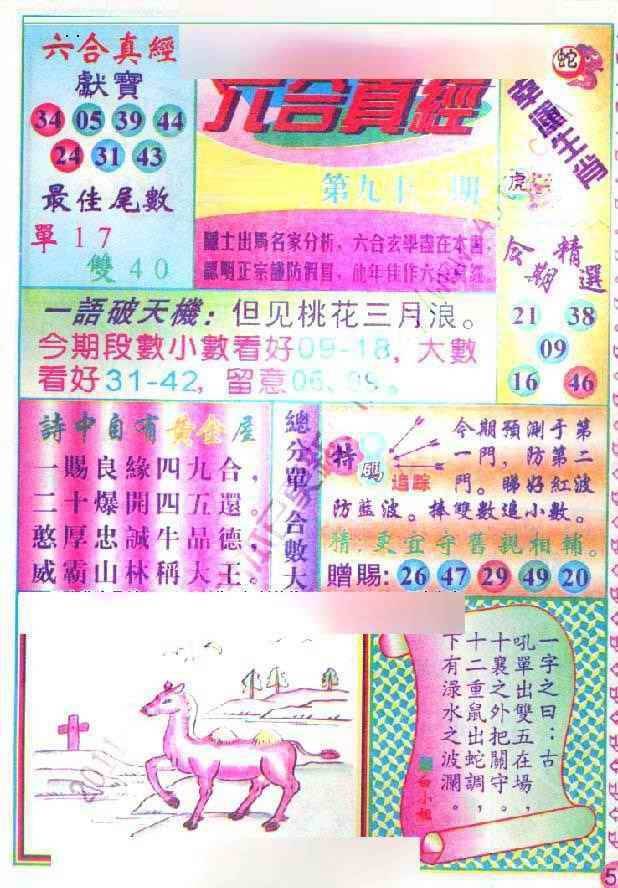 六合真經
獻寶
34 05 39 44
24 31 43
最佳尾數
單 1 7
雙 4 0
六合真經
第九十二期
蛇
幸運生肖
虎
今期精選
21 38
09
16 46
一語破天機：但见桃花三月浪。
今期段數小數看好09-18，大數
看好31-42，留意06、09。
詩中自有黄金屋
一賜良緣四九合，
二十爆開四五還。
憨厚忠誠牛品德，
威霸山林稱大王。
總分單
合數大
特碼
追踪
今期預測于第
一門，防第二
門。睇好紅波
防藍波。捧雙數追小數。
精：更宜守舊親相輔。
贈賜：26 47 29 49 20
一字之曰：古
吼單出雙五在場，
十裹之外把關守。
十二重鼠出蛇調，
下有渌水之波瀾。
白小姐
5